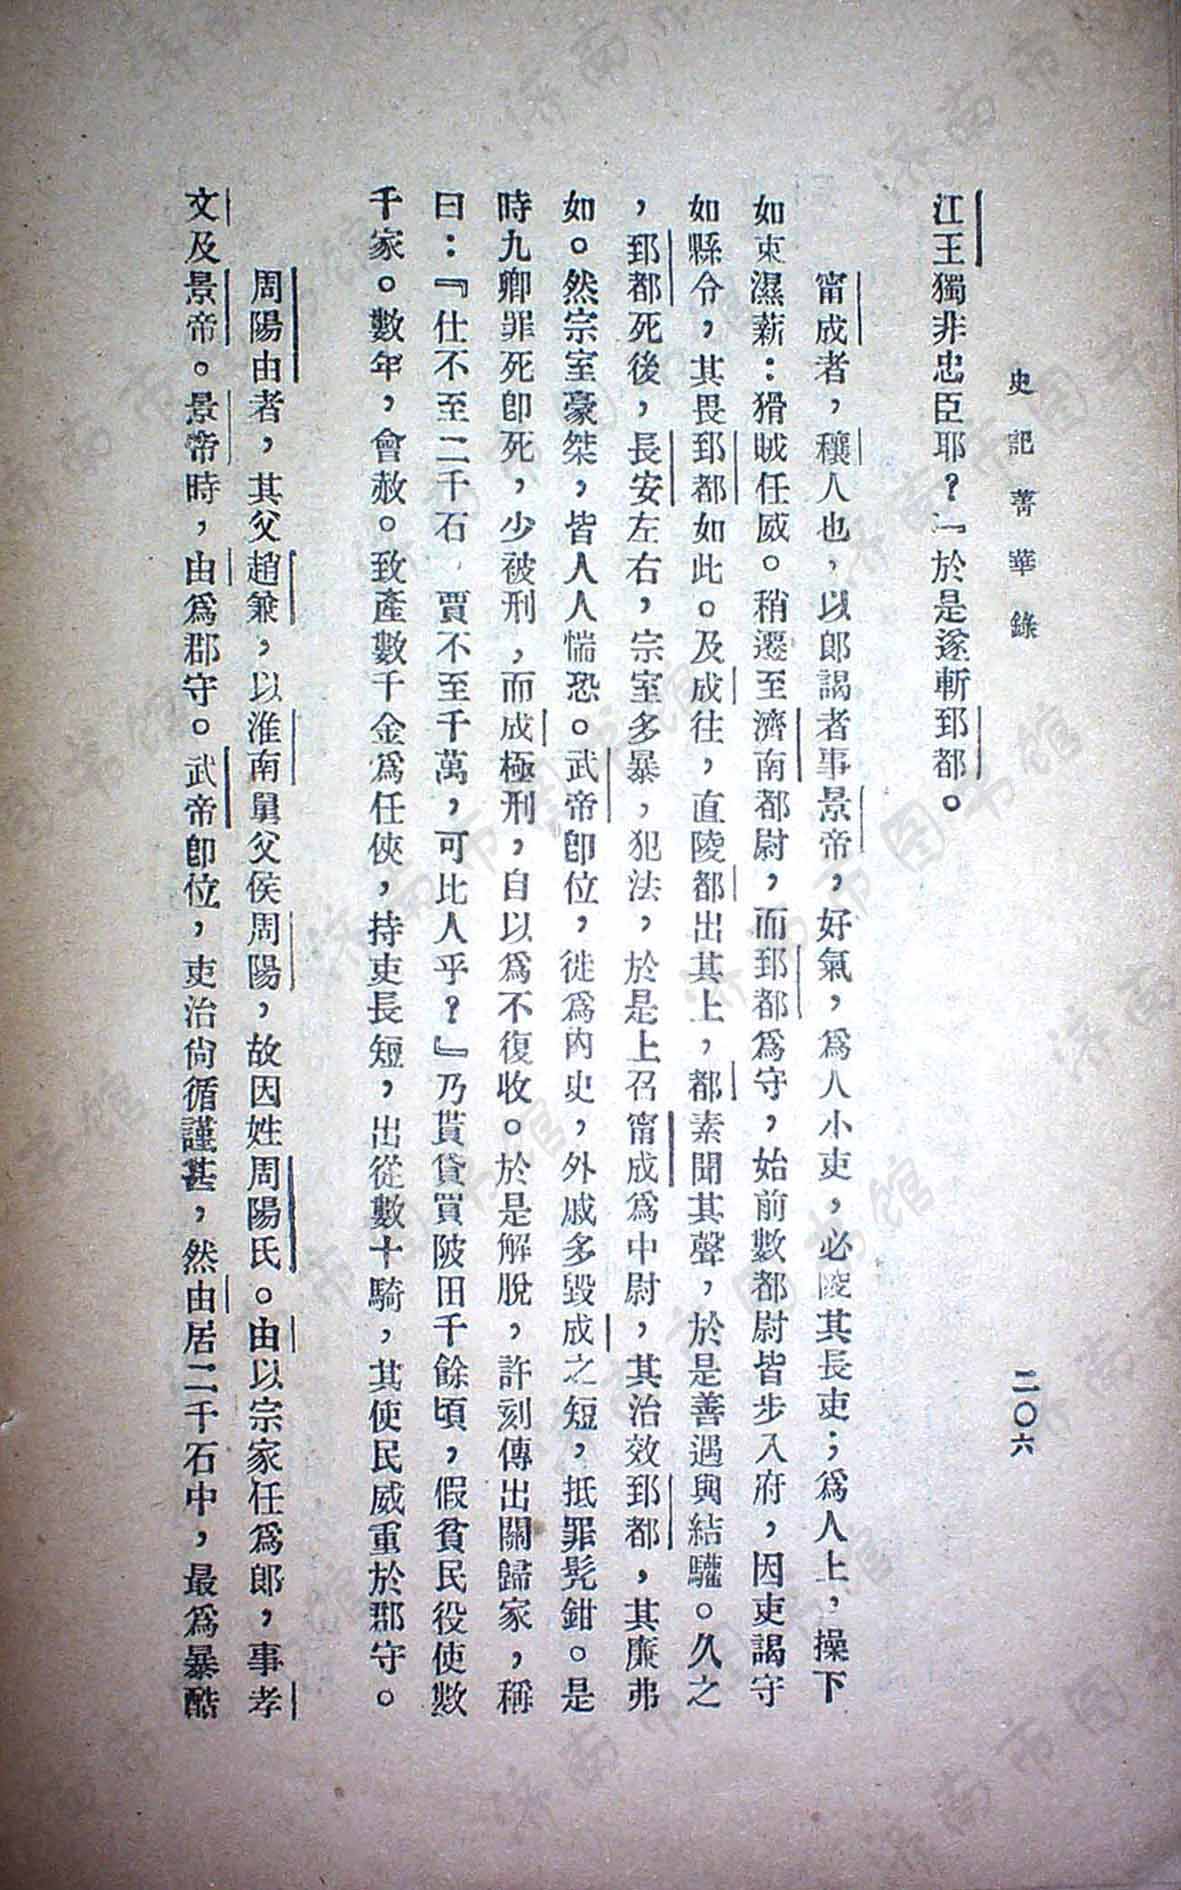 史記菁華錄
二〇六
江王獨非忠臣耶？』於是遂斬郅都。
甯成者，穰人也，以郞謁者事景帝，好氣，爲人小吏，必陵其長吏；爲人上，操下
如束濕薪：猾賊任威。稍遷至濟南都尉，而郅都爲守，始前數都尉皆步入府，因吏謁守
如縣令，其畏郅都如此。及成往，直陵都出其上，都素聞其聲，於是善遇與結驩。久之
，郅都死後，長安左右，宗室多暴，犯法，於是上召甯成爲中尉，其治效郅都，其廉弗
如。然宗室豪桀，皆人人惴恐。武帝卽位，徙爲內史，外戚多毀成之短，抵罪髡鉗。是
時九卿罪死卽死，少被刑，而成極刑，自以爲不復收。於是解脫，詐刻傳出關歸家，稱
曰：『仕不至二千石，賈不至千萬，可比人乎？』乃貰貸買陂田千餘頃，假貧民役使數
千家。數年，會赦。致產數千金爲任俠，持吏長短，出從數十騎，其使民威重於郡守。
周陽由者，其父趙兼，以淮南舅父侯周陽，故因姓周陽氏。由以宗家任爲郞，事孝
文及景帝。景帝時，由爲郡守。武帝卽位，吏治尙循謹甚，然由居二千石中，最爲暴酷
济南市图书馆